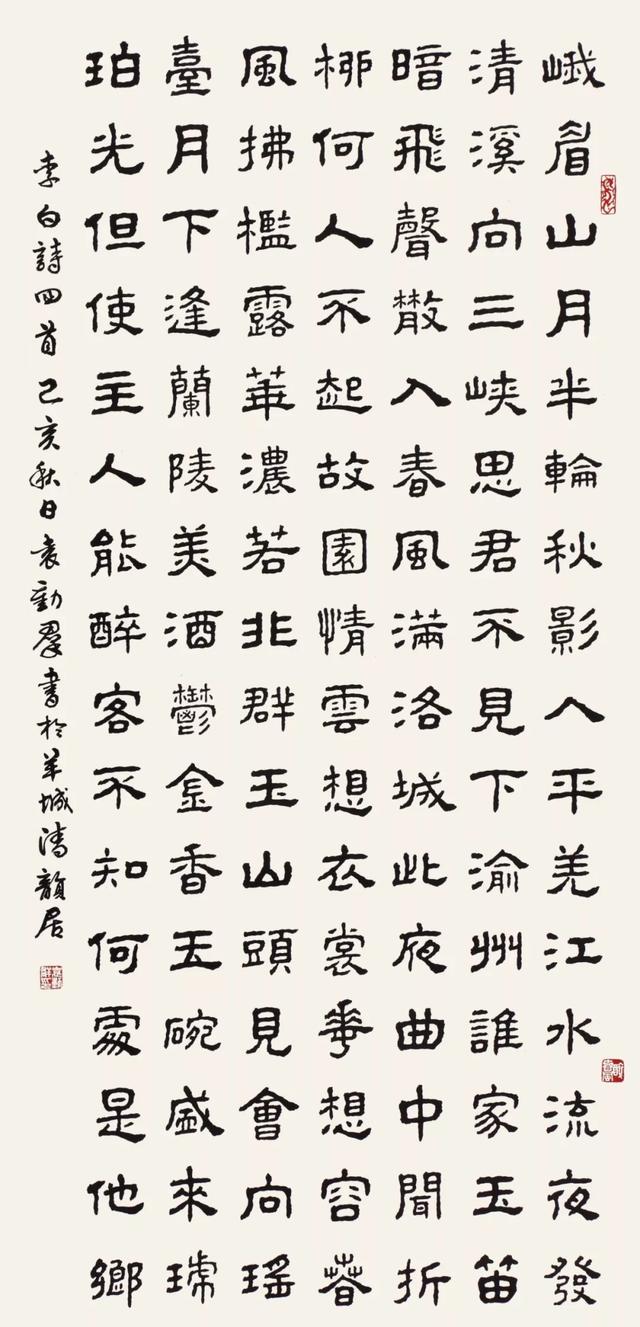 峨眉山月半輪秋影入平羌江水流夜發
清溪向三峽思君不見下渝州誰家玉笛
暗飛聲散入春風滿洛城此夜曲中聞折
柳何人不起故園情雲想衣裳華想容春
風拂檻露華濃若非群玉山頭見會向瑤
臺月下逢蘭陵美酒鬱金香玉碗盛來琥
珀光但使主人能醉客不知何處是他鄉
李白詩四首己亥秋日袁勁群書於羊城清韻居